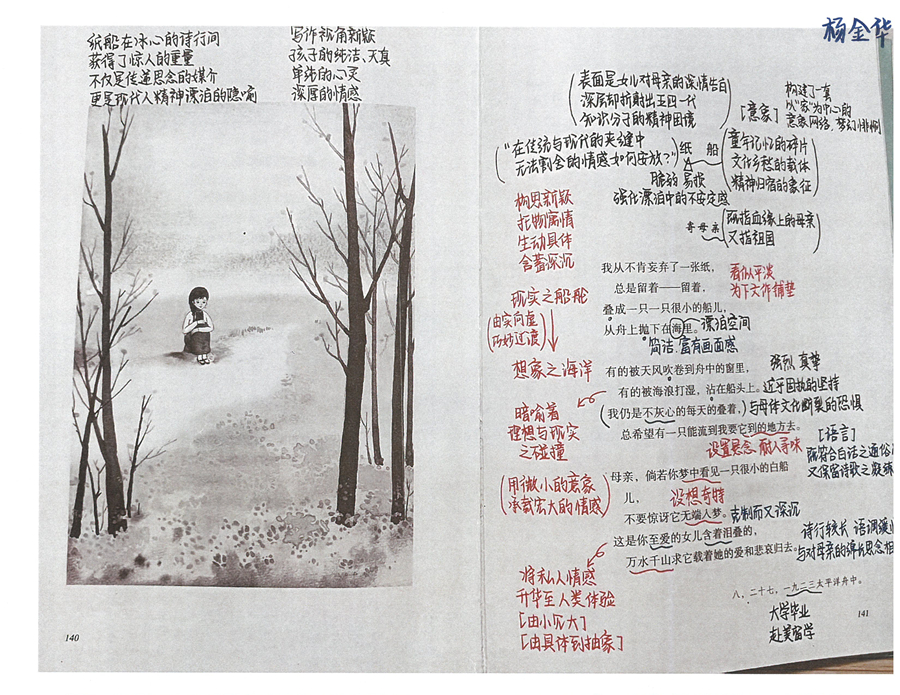 杨金华
纸船在冰心的诗行间
获得了惊人的重量
不仅是传递思念的媒介
更是现代人精神漂泊的隐喻
写作视角新颖
孩子的纯洁、天真
单纯的心灵
深厚的情感
140
表面是女儿对母亲的深情告白
深层却折射出五四一代
知识分子的精神困境
[意象]
构建了一套
以“家”为中心的
意象网络,梦幻
“在传统与现代的夹缝中
无法割舍的情感如何安放?”
纸 船
童年记忆的碎片
文化乡愁的载体
精神归宿的象征
脆弱 易损
强化漂泊中的不安定感
寄母亲
既指血缘上的母亲
又指祖国
构思新颖
托物寓情
生动具体
含蓄深沉
我从不肯妄弃了一张纸,
总是留着——留着,
看似平淡
为下文作铺垫
叠成一只一只很小的船儿,
从舟上抛下在海里。
漂泊空间
简洁 富有画面感
现实之船舱
由实向虚
巧妙过渡
想象之海洋
有的被天风吹卷到舟中的窗里,
强烈 真挚
有的被海浪打湿,沾在船头上。
近乎固执的坚持
我仍是不灰心的每天的叠着,
与母体文化断裂的恐惧
总希望有一只能流到我要它到的地方去。
设置悬念 耐人寻味
暗喻着
理想与现实
之碰撞
[语言]
既符合白话之通俗
又保留诗歌之凝
母亲,倘若你梦中看见一只很小的白船
儿,
设想奇特
不要惊讶它无端入梦。
克制而又深沉
用微小的意象
承载宏大的情感
这是你至爱的女儿含着泪叠的,
万水千山求它载着她的爱和悲哀归去。
诗行较长 语调缓
与对母亲的绵长思念相
将私人情感
升华至人类体验
[由小见大]
[由具体到抽象]
八,二十七,一九二三太平洋舟中。
大学毕业
赴美留学
141